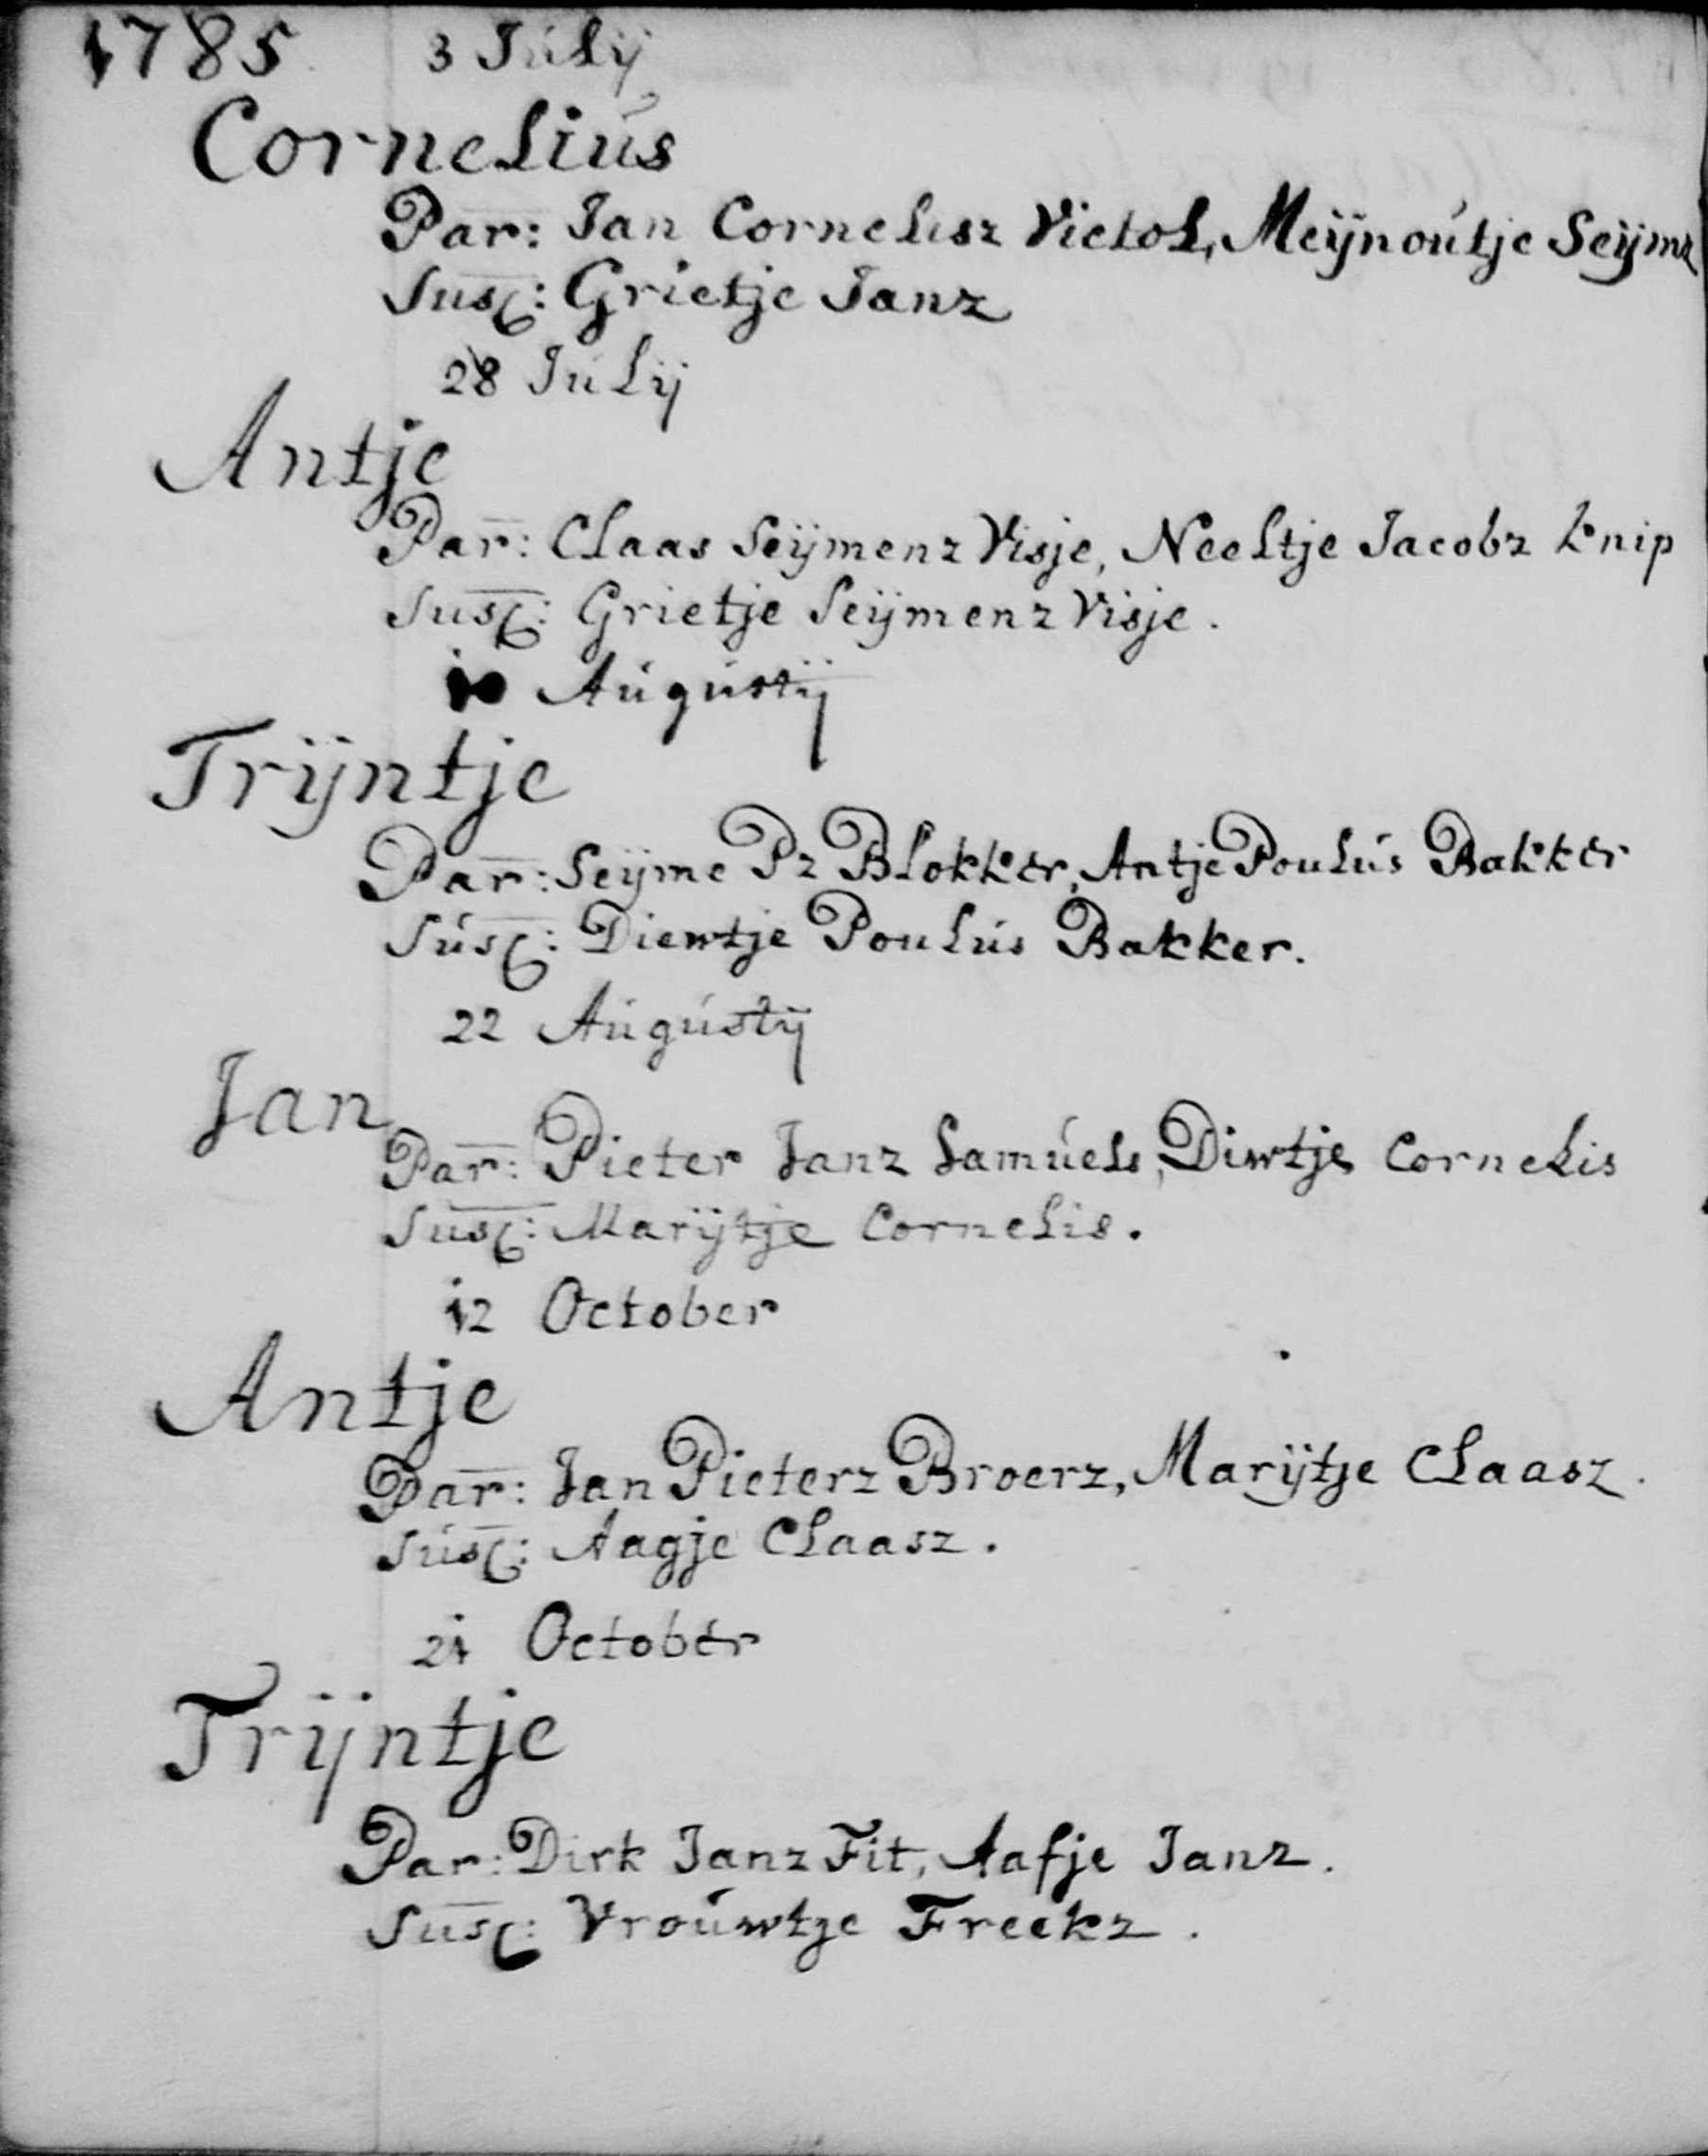 1785 3 Júlij
Corneliús
Par: Jan Cornelisz Vietol, Meijnoútje Seijmz
Susc: Grietje Janz
28 Júlij
Antje
Par: Claas Seijmenz Visje, Neeltje Jacobz Knip
Susc: Grietje Seijmenz Visje.
10 Aúgústij
Trijntje
Par: Seijme Pz Blokker, Antje Poulús Bakker
Súsc: Diewtje Poulús Bakker.
22 Aúgústij
Jan
Par: Pieter Janz Samúels, Diwtje Cornelis
Susc: Marijtje Cornelis.
12 October
Antje
Par: Jan Pieterz Broerz, Marijtje Claasz.
Súsc: Aagje Claasz.
21 October
Trijntje
Par: Dirk Janz Fit, Aafje Janz.
Susc: Vroúwtje Freekz.